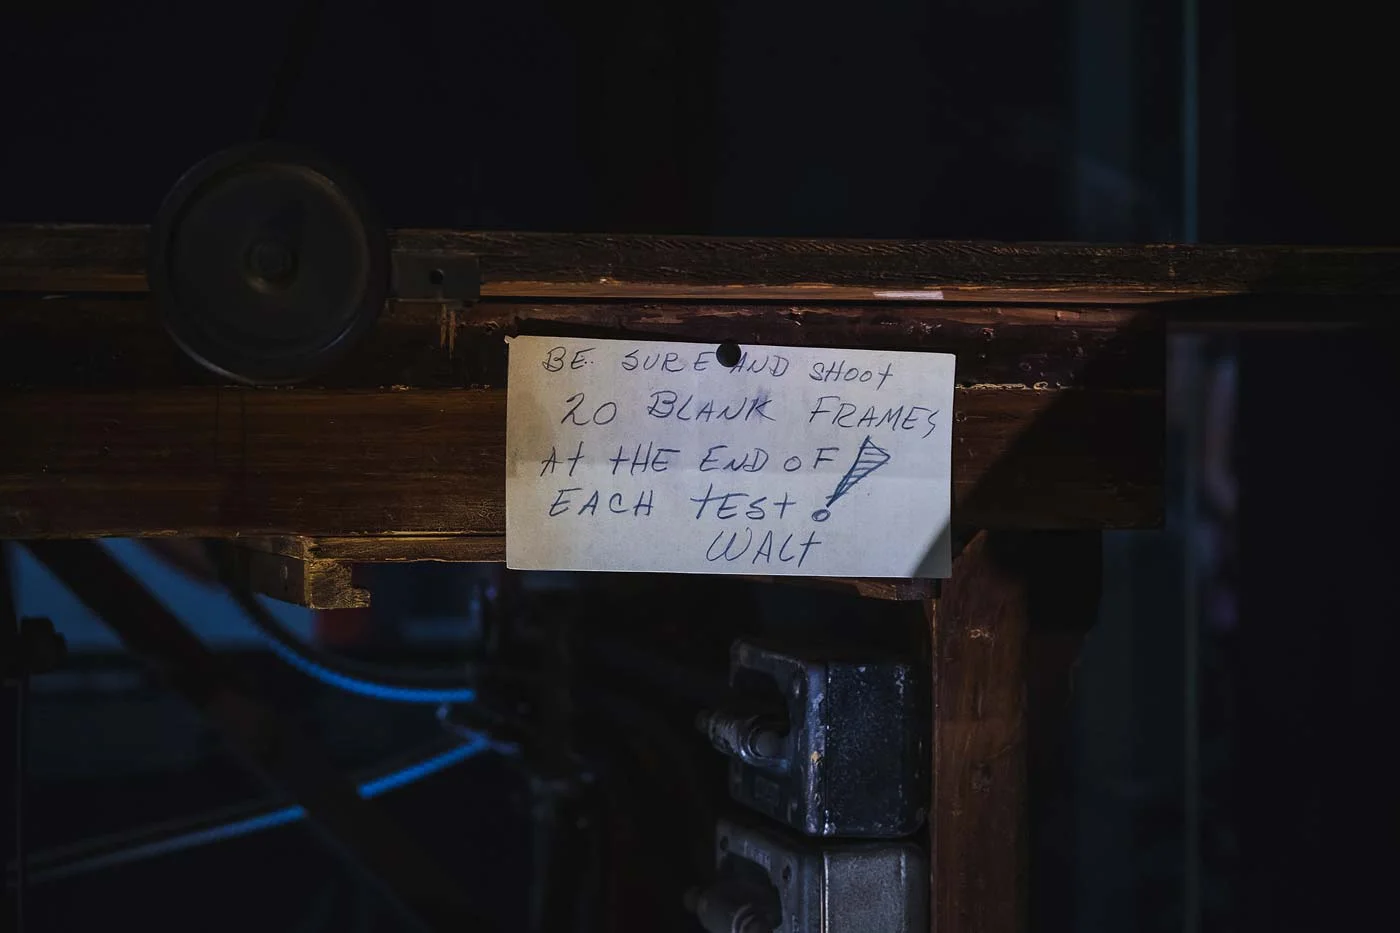 BE SURE AND SHOOT
20 BLANK FRAMES
AT THE END OF
EACH TEST!
WALT